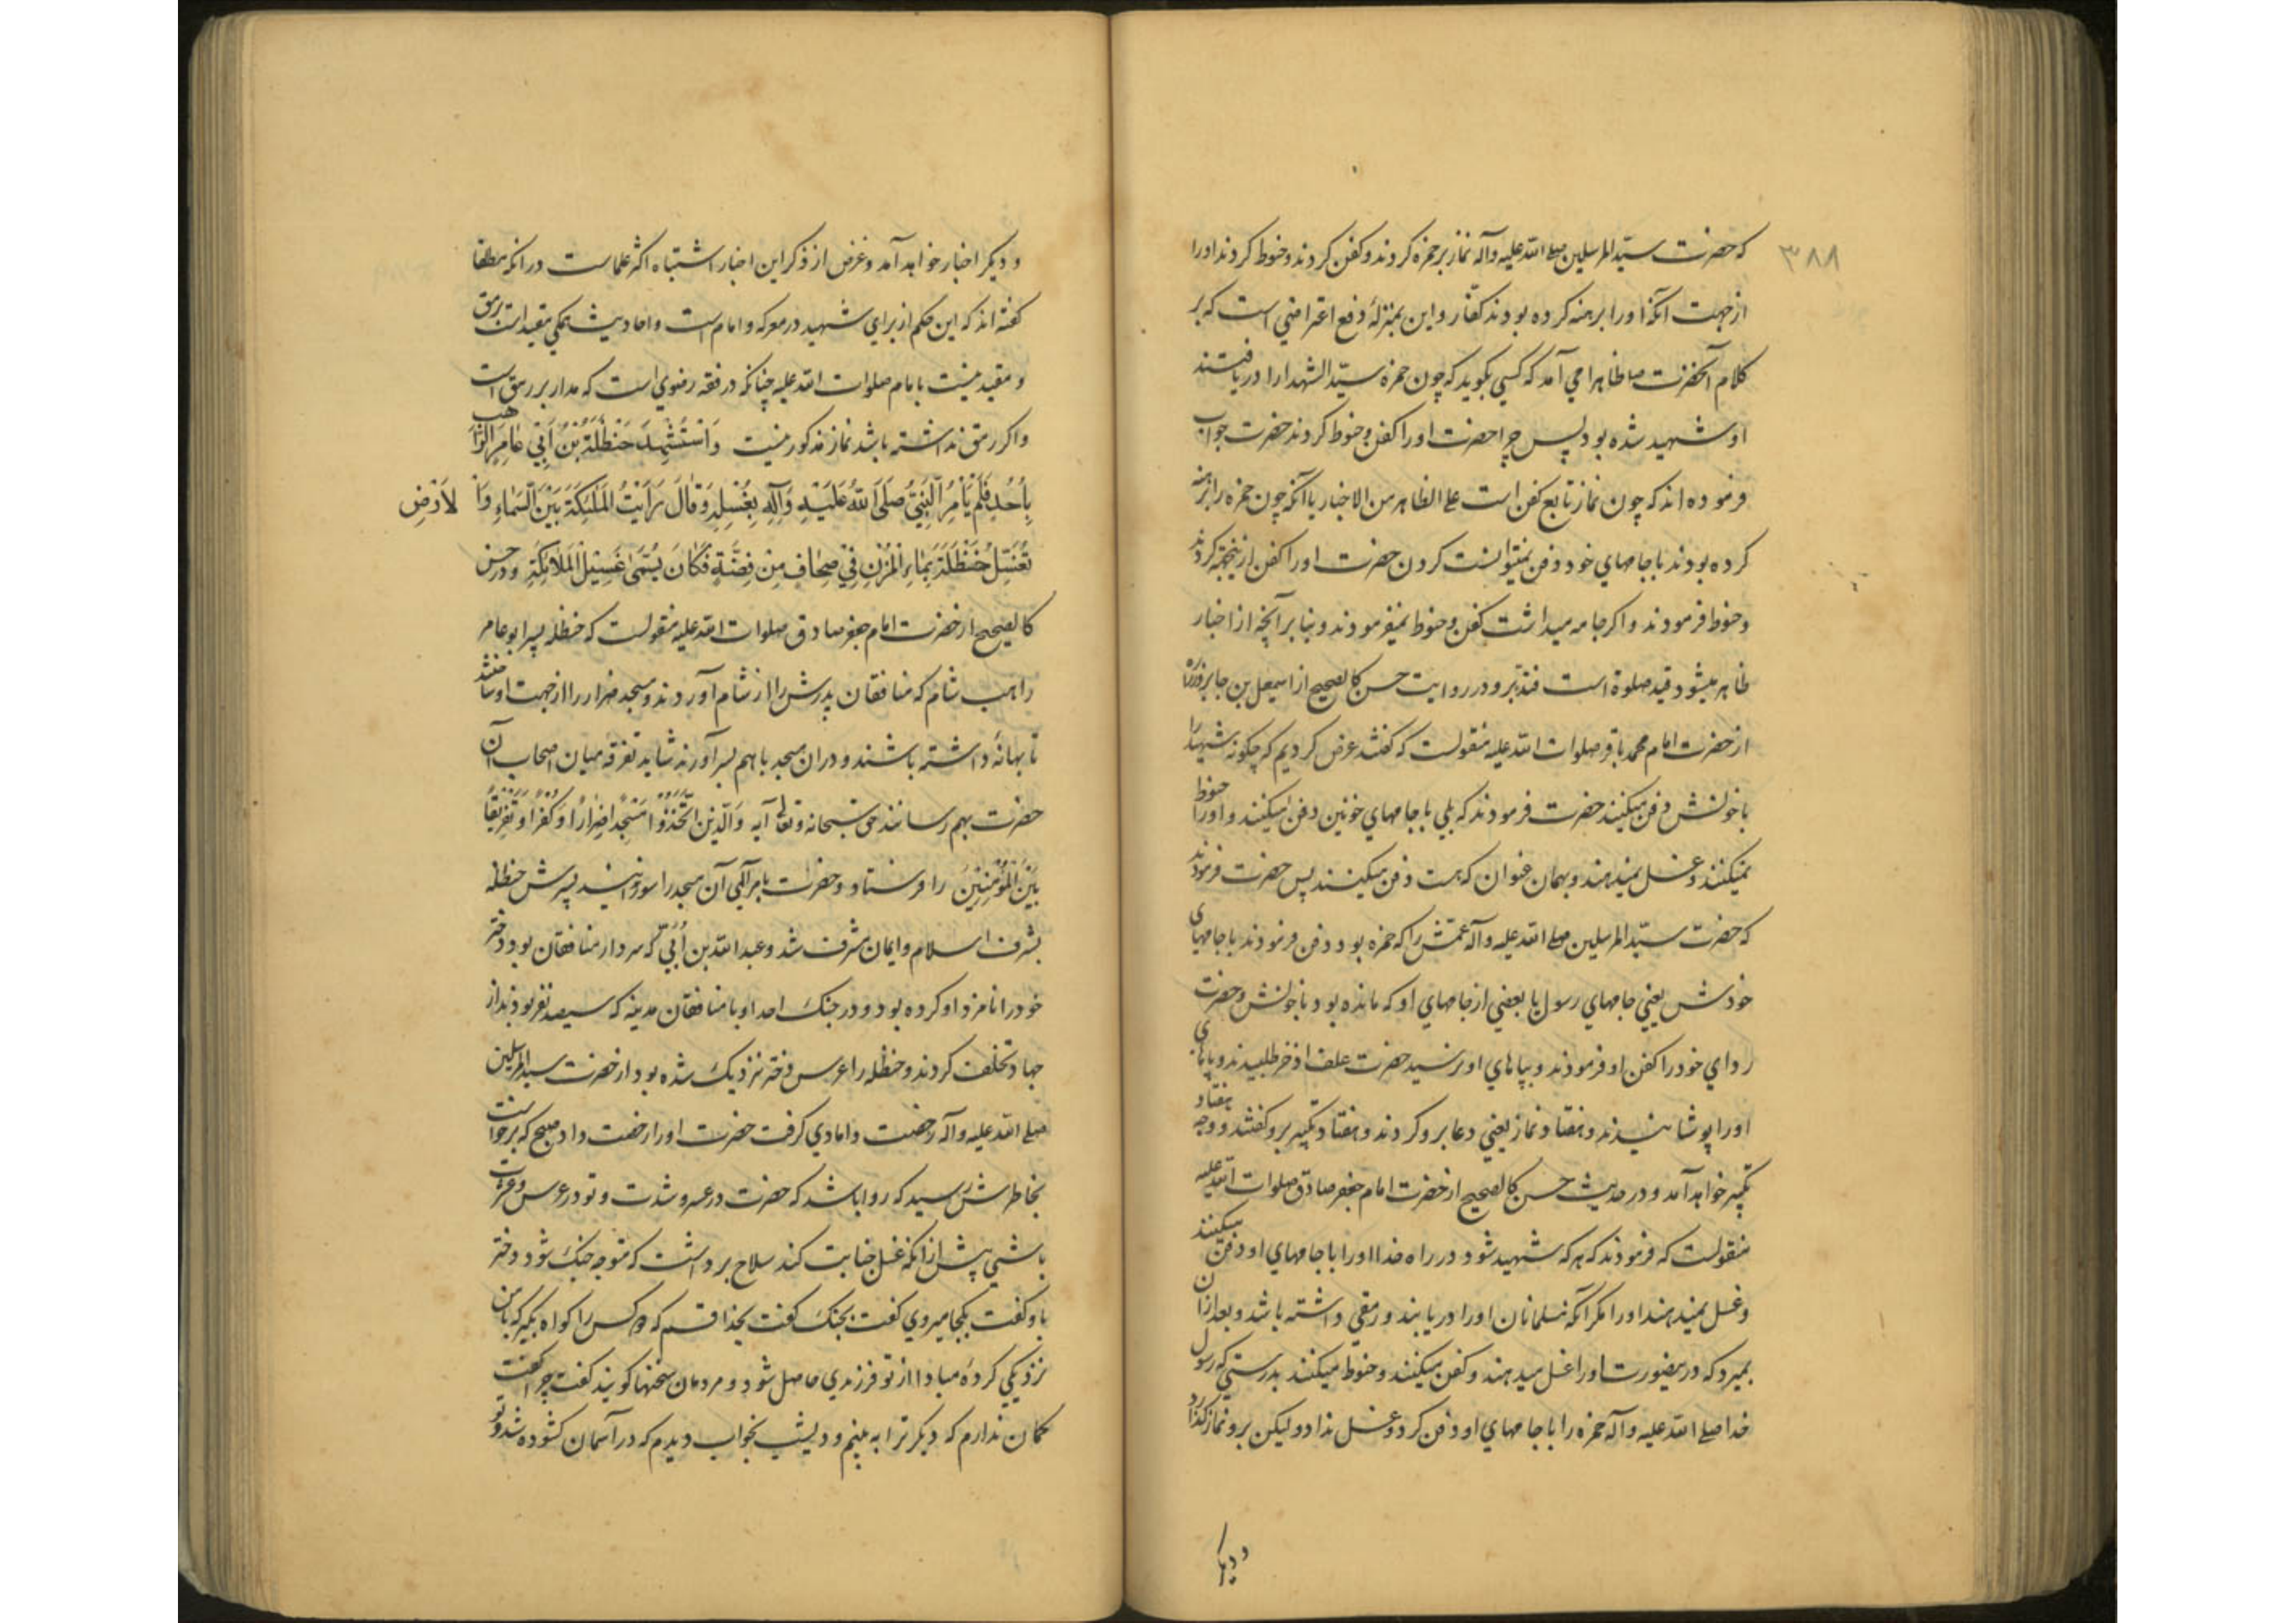 ۳۸۸
که حضرت سیّد المرسلین صلی الله علیه وآله نماز بر حمزه کردند و کفن کردند و حنوط کردند او را
از جهت آنکه او را برهنه کرده بودند کفّار و این بمنزلهٔ دفع اعتراضی است که بر
کلام آنحضرت صا ظاهرا می آمد که کسی بکوید که چون حمزه سیّد الشهدا را دریافتند
او شهید شده بود پس چرا حضرت او را کفن و حنوط کردند حضرت جواب
فرموده اند که چون نماز تابع کفن است علی الظاهر من الاخبار یا آنکه چون حمزه را برهنه
کرده بودند با جامهای خود دفن نمیتوانست کردن حضرت او را کفن ازینجهة کردند
و حنوط فرمودند و اکر جامه میداشت کفن و حنوط نمیفرمودند و بنا بر آنچه از اخبار
ظاهر میشود قید صلوة است فتدبّر و در روایت حسن کالصحیح از اسمعیل بن جابر و زراره
از حضرت امام محمد باقر صلوات الله علیه منقولست که کفتند عرض کردیم که چکونه شهید را
با خونش دفن میکنند حضرت فرمودند که بلی با جامهای خونین دفن میکنند و او را حنوط
نمیکنند و غسل نمیدهند و بهمان عنوان که هست دفن میکنند پس حضرت فرمودند
که حضرت سیّد المرسلین صلی الله علیه وآله عمّش را که حمزه بود دفن فرمودند با جامهای
خودش یعنی جامهای رسول یا بعضی از جامهای او که مانده بود با خونش و حضرت
ردای خود را کفن او فرمودند و بپاهای او نرسید حضرت علف اذخر طلبیدند و پاهای
او را پوشانیدند و هفتاد نماز یعنی دعا برو کردند و هفتاد تکبیر برو کفتند و وجه هفتاد
تکبیر خواهد آمد و در حدیث حسن کالصحیح از حضرت امام جعفر صادق صلوات الله علیه
منقولست که فرمودند که هر که شهید شود در راه خدا او را با جامهای او دفن میکنند
و غسل نمیدهند او را مکر آنکه مسلمانان او را دریابند و رمقی داشته باشد و بعد از آن
بمیرد که درینصورت او را غسل میدهند و کفن میکنند و حنوط میکنند بدرستی که رسول
خدا صلی الله علیه وآله حمزه را با جامهای او دفن کرد و غسل نداد ولیکن برو نماز کذارد
و دیکر
و دیکر اخبار خواهد آمد و غرض از ذکر این اخبار اشتباه اکثر علماست در آنکه مطلقا
کفته اند که این حکم از برای شهید در معرکه و امام است و احادیث همکی مقید است برمق
و مقید نیست بامام صلوات الله علیه چنانکه در فقه رضوی است که مدار بر رمق است
و اکر رمق نداشته باشد نماز مذکور نیست وَاسْتُشْهِدَ حَنْظَلَةُ بْنُ اَبِي عَامِرٍ الرَّاهِب
بِاُحُدٍ فَلَمْ يَاْمُرِ النَّبِيُّ صَلَّى اللهُ عَلَيْهِ وَآلِهِ بِغُسْلِهِ وَقَالَ رَاَيْتُ الْمَلٰئِكَةَ بَيْنَ السَّمَاءِ وَالاَرْضِ
تُغَسِّلُ حَنْظَلَةَ بِمَاءِ الْمُزْنِ فِي صِحَافٍ مِنْ فِضَّةٍ فَكَانَ يُسَمَّى غَسِيلَ الْمَلاَئِكَةِ و در حسن
کالصحیح از حضرت امام جعفر صادق صلوات الله علیه منقولست که حنظله پسر ابو عامر
راهب شام که منافقان پدرش را از شام آوردند و مسجد ضرار را از جهت او ساختند
تا بهانهٔ داشته باشند و در آن مسجد با هم بسر آورند شاید تفرقه میان اصحاب آن
حضرت بهم رسانند حق سبحانه و تعالی آیه وَالَّذِينَ اتَّخَذُوا مَسْجِدًا ضِرَارًا وَكُفْرًا وَتَفْرِيقًا
بَيْنَ الْمُؤْمِنِينَ را فرستاد و حضرات بامر الهی آن مسجد را سوزانیدند پسرش حنظله
بشرف اسلام و ایمان مشرف شد و عبدالله بن اُبَیّ که سردار منافقان بود دختر
خود را نامزد او کرده بود و در جنک احد او با منافقان مدینه که سیصد نفر بودند از
جهاد تخلف کردند و حنظله را عرس دختر نزدیک شده بود از حضرت سید المرسلین
صلی الله علیه وآله رخصت دامادی کرفت حضرت او را رخصت داد صبح که برخواست
بخاطرش رسید که روا باشد که حضرت در عسر و شدت و تو در عرس و عشرت
باشی پیش از آنکه غسل جنابت کند سلاح برداشت که متوجه جنک شود دختر
باو کفت بکجا میروی کفت بجنک کفت بخدا قسم که دو کس را کواه بکیر که با من
نزدیکی کردهٔ مبادا از تو فرزندی حاصل شود و مردمان سخنها کویند کفت چرا کفت
کمان ندارم که دیکر ترا به بینم و دیشب بخواب دیدم که در آسمان کشوده شد و تو